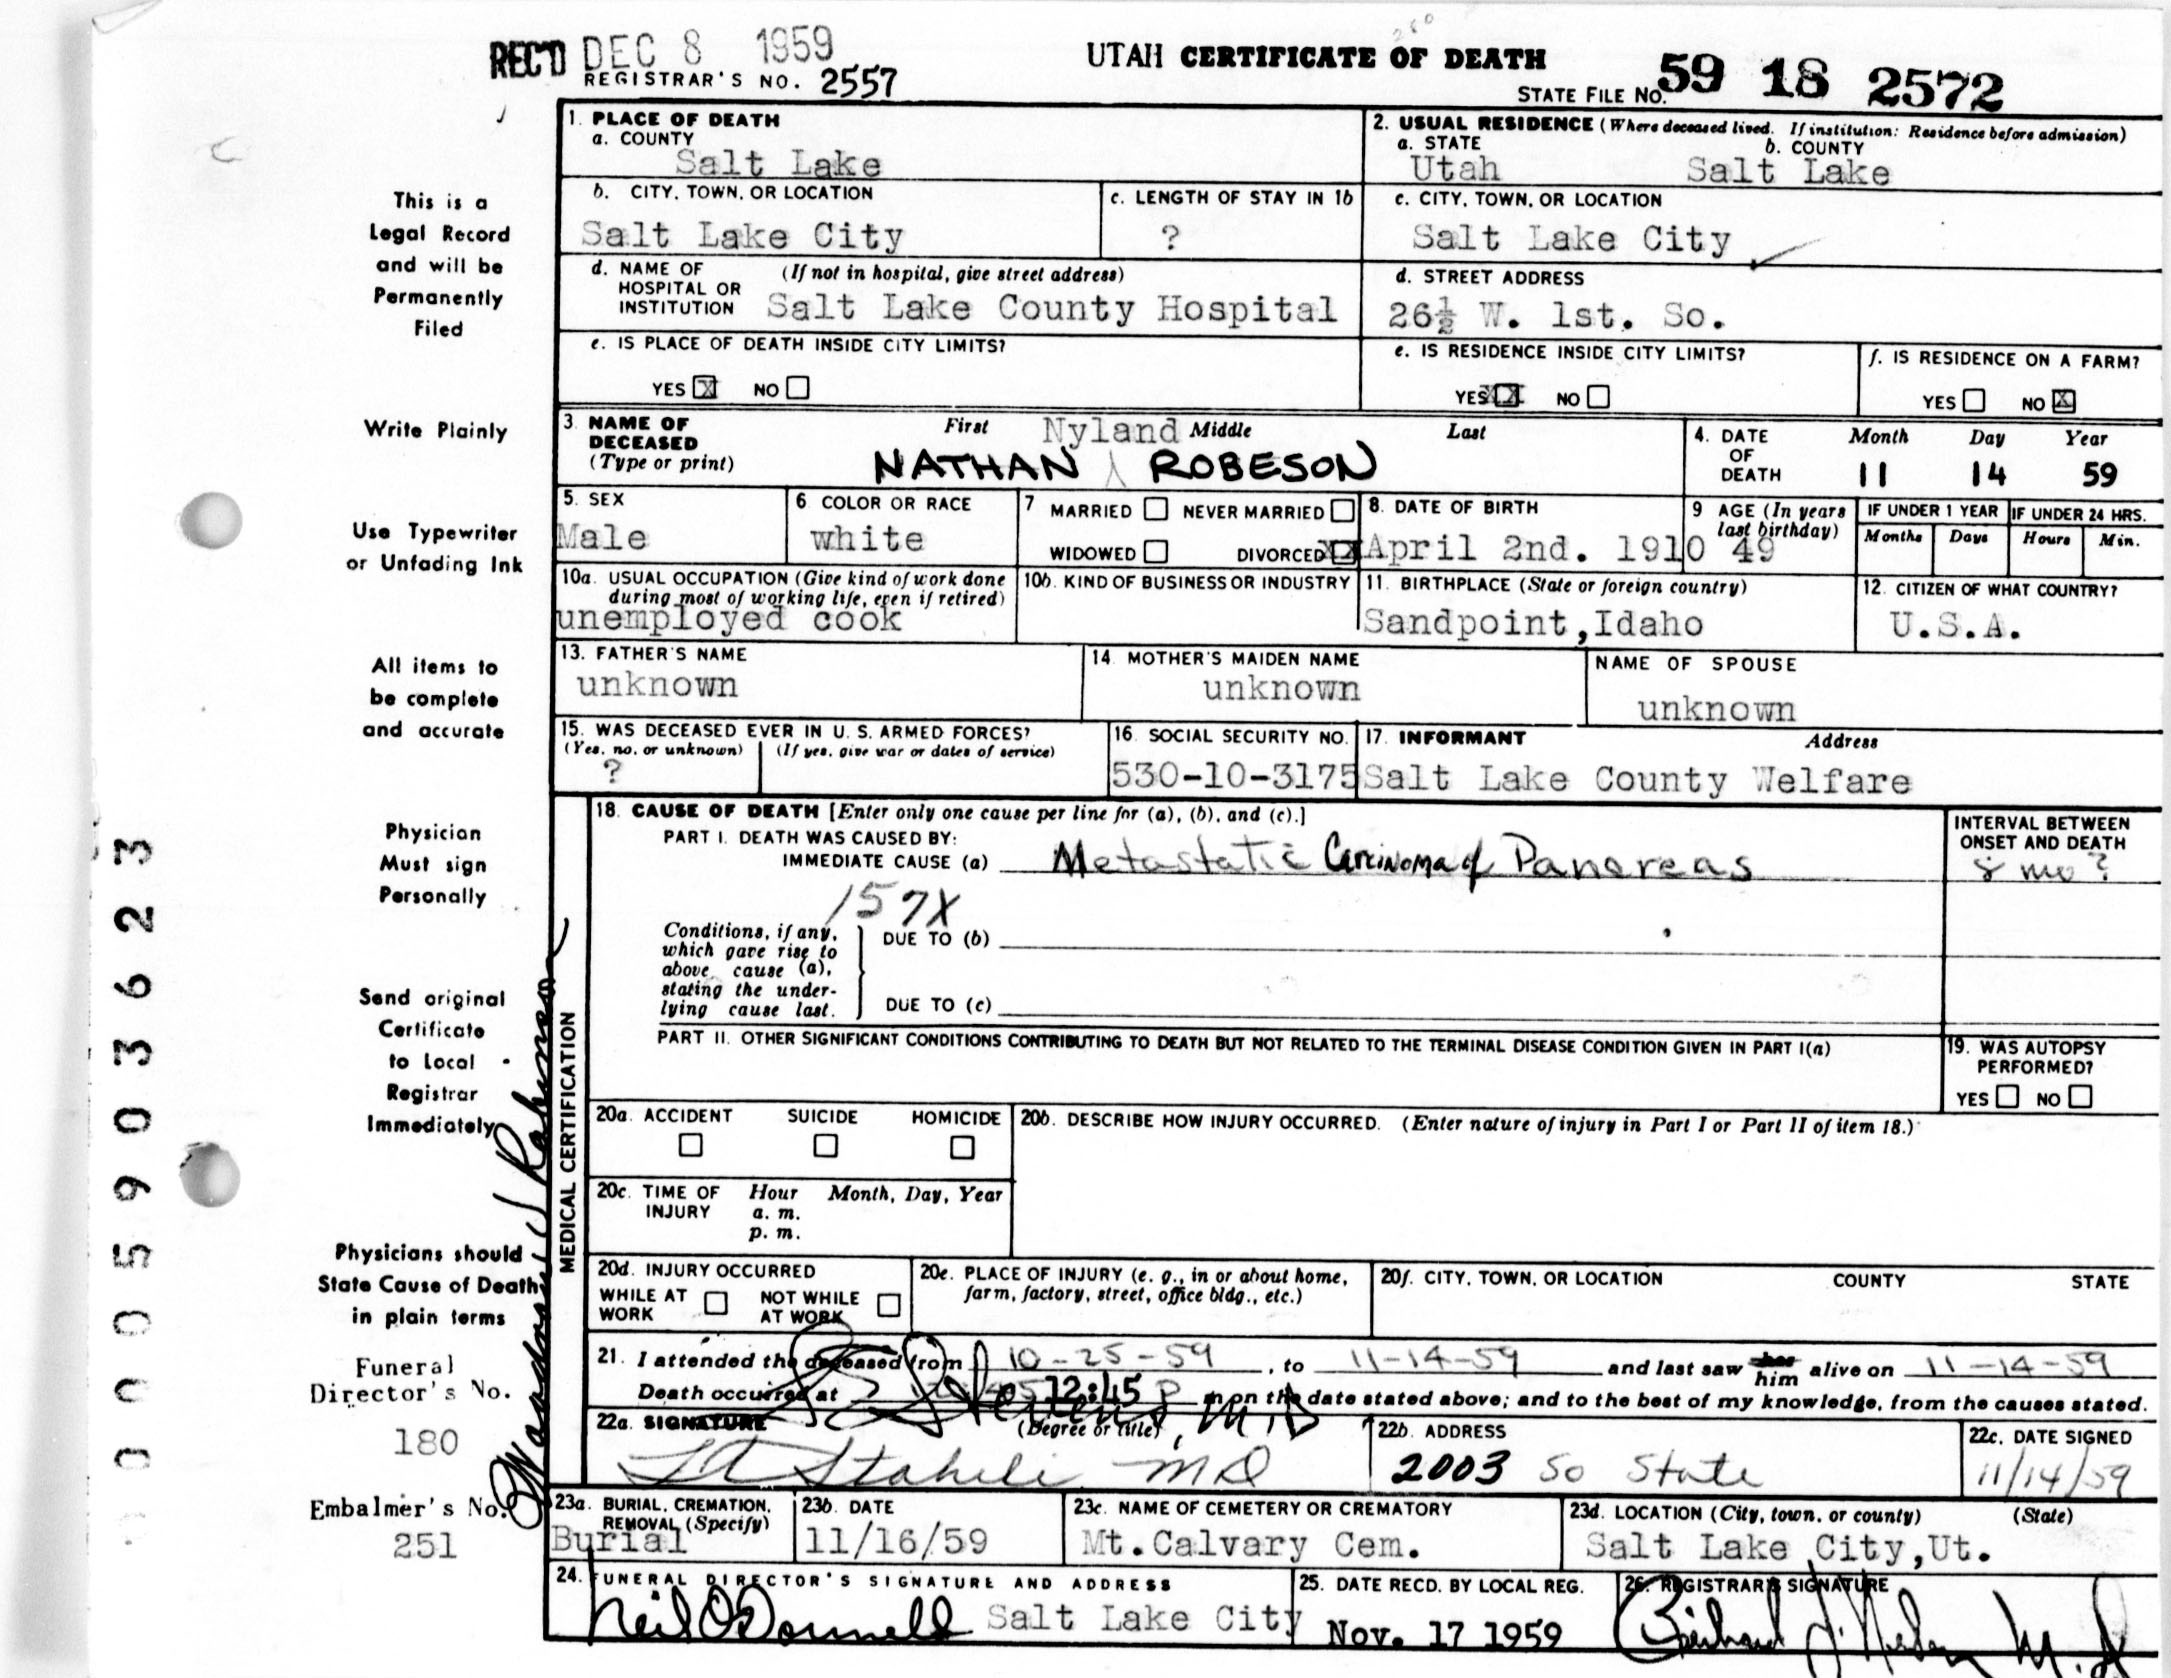 REC'D DEC 8 1959
REGISTRAR'S NO. 2557
UTAH CERTIFICATE OF DEATH
STATE FILE NO. 59 18 2572
This is a
Legal Record
and will be
Permanently
Filed
Write Plainly
Use Typewriter
or Unfading Ink
All items to
be complete
and accurate
Physician
Must sign
Personally
Send original
Certificate
to Local
Registrar
Immediately
Physicians should
State Cause of Death
in plain terms
Funeral
Director's No.
180
Embalmer's No.
251
00005903623
1. PLACE OF DEATH
a. COUNTY
Salt Lake
b. CITY, TOWN, OR LOCATION
Salt Lake City
c. LENGTH OF STAY IN 1b
?
d. NAME OF HOSPITAL OR INSTITUTION (If not in hospital, give street address)
Salt Lake County Hospital
e. IS PLACE OF DEATH INSIDE CITY LIMITS?
YES X NO
2. USUAL RESIDENCE (Where deceased lived. If institution: Residence before admission)
a. STATE b. COUNTY
Utah Salt Lake
c. CITY, TOWN, OR LOCATION
Salt Lake City
d. STREET ADDRESS
26½ W. 1st. So.
e. IS RESIDENCE INSIDE CITY LIMITS?
YES XX NO
f. IS RESIDENCE ON A FARM?
YES NO X
3. NAME OF DECEASED (Type or print)
First Middle Last
Nyland
NATHAN ROBESON
4. DATE OF DEATH Month Day Year
11 14 59
5. SEX
Male
6. COLOR OR RACE
white
7 MARRIED NEVER MARRIED
WIDOWED DIVORCED XX
8. DATE OF BIRTH
April 2nd. 1910
9 AGE (In years last birthday)
49
IF UNDER 1 YEAR IF UNDER 24 HRS.
Months Days Hours Min.
10a. USUAL OCCUPATION (Give kind of work done during most of working life, even if retired)
unemployed cook
10b. KIND OF BUSINESS OR INDUSTRY
11. BIRTHPLACE (State or foreign country)
Sandpoint,Idaho
12. CITIZEN OF WHAT COUNTRY?
U.S.A.
13. FATHER'S NAME
unknown
14. MOTHER'S MAIDEN NAME
unknown
NAME OF SPOUSE
unknown
15. WAS DECEASED EVER IN U. S. ARMED FORCES?
(Yes, no, or unknown) (If yes, give war or dates of service)
?
16. SOCIAL SECURITY NO.
530-10-3175
17. INFORMANT Address
Salt Lake County Welfare
MEDICAL CERTIFICATION
18. CAUSE OF DEATH [Enter only one cause per line for (a), (b), and (c).]
PART I. DEATH WAS CAUSED BY:
IMMEDIATE CAUSE (a) Metastatic Carcinoma of Pancreas
INTERVAL BETWEEN
ONSET AND DEATH
8 mo?
157X
Conditions, if any,
which gave rise to
above cause (a),
stating the under-
lying cause last.
DUE TO (b)
DUE TO (c)
PART II. OTHER SIGNIFICANT CONDITIONS CONTRIBUTING TO DEATH BUT NOT RELATED TO THE TERMINAL DISEASE CONDITION GIVEN IN PART I(a)
19. WAS AUTOPSY
PERFORMED?
YES NO
20a. ACCIDENT SUICIDE HOMICIDE
20b. DESCRIBE HOW INJURY OCCURRED. (Enter nature of injury in Part I or Part II of item 18.)
20c. TIME OF INJURY Hour Month, Day, Year
a. m.
p. m.
20d. INJURY OCCURRED
WHILE AT WORK NOT WHILE AT WORK
20e. PLACE OF INJURY (e. g., in or about home,
farm, factory, street, office bldg., etc.)
20f. CITY, TOWN, OR LOCATION COUNTY STATE
21. I attended the deceased from 10-25-59, to 11-14-59 and last saw her him alive on 11-14-59
Death occurred at 12:45 P m on the date stated above; and to the best of my knowledge, from the causes stated.
22a. SIGNATURE (Degree or title)
M.D
Staheli MD
22b. ADDRESS
2003 So State
22c. DATE SIGNED
11/14/59
23a. BURIAL, CREMATION,
REMOVAL (Specify)
Burial
23b. DATE
11/16/59
23c. NAME OF CEMETERY OR CREMATORY
Mt.Calvary Cem.
23d. LOCATION (City, town, or county) (State)
Salt Lake City,Ut.
24. FUNERAL DIRECTOR'S SIGNATURE AND ADDRESS
Neil O'Donnell Salt Lake City
25. DATE RECD. BY LOCAL REG.
Nov. 17 1959
26. REGISTRAR'S SIGNATURE